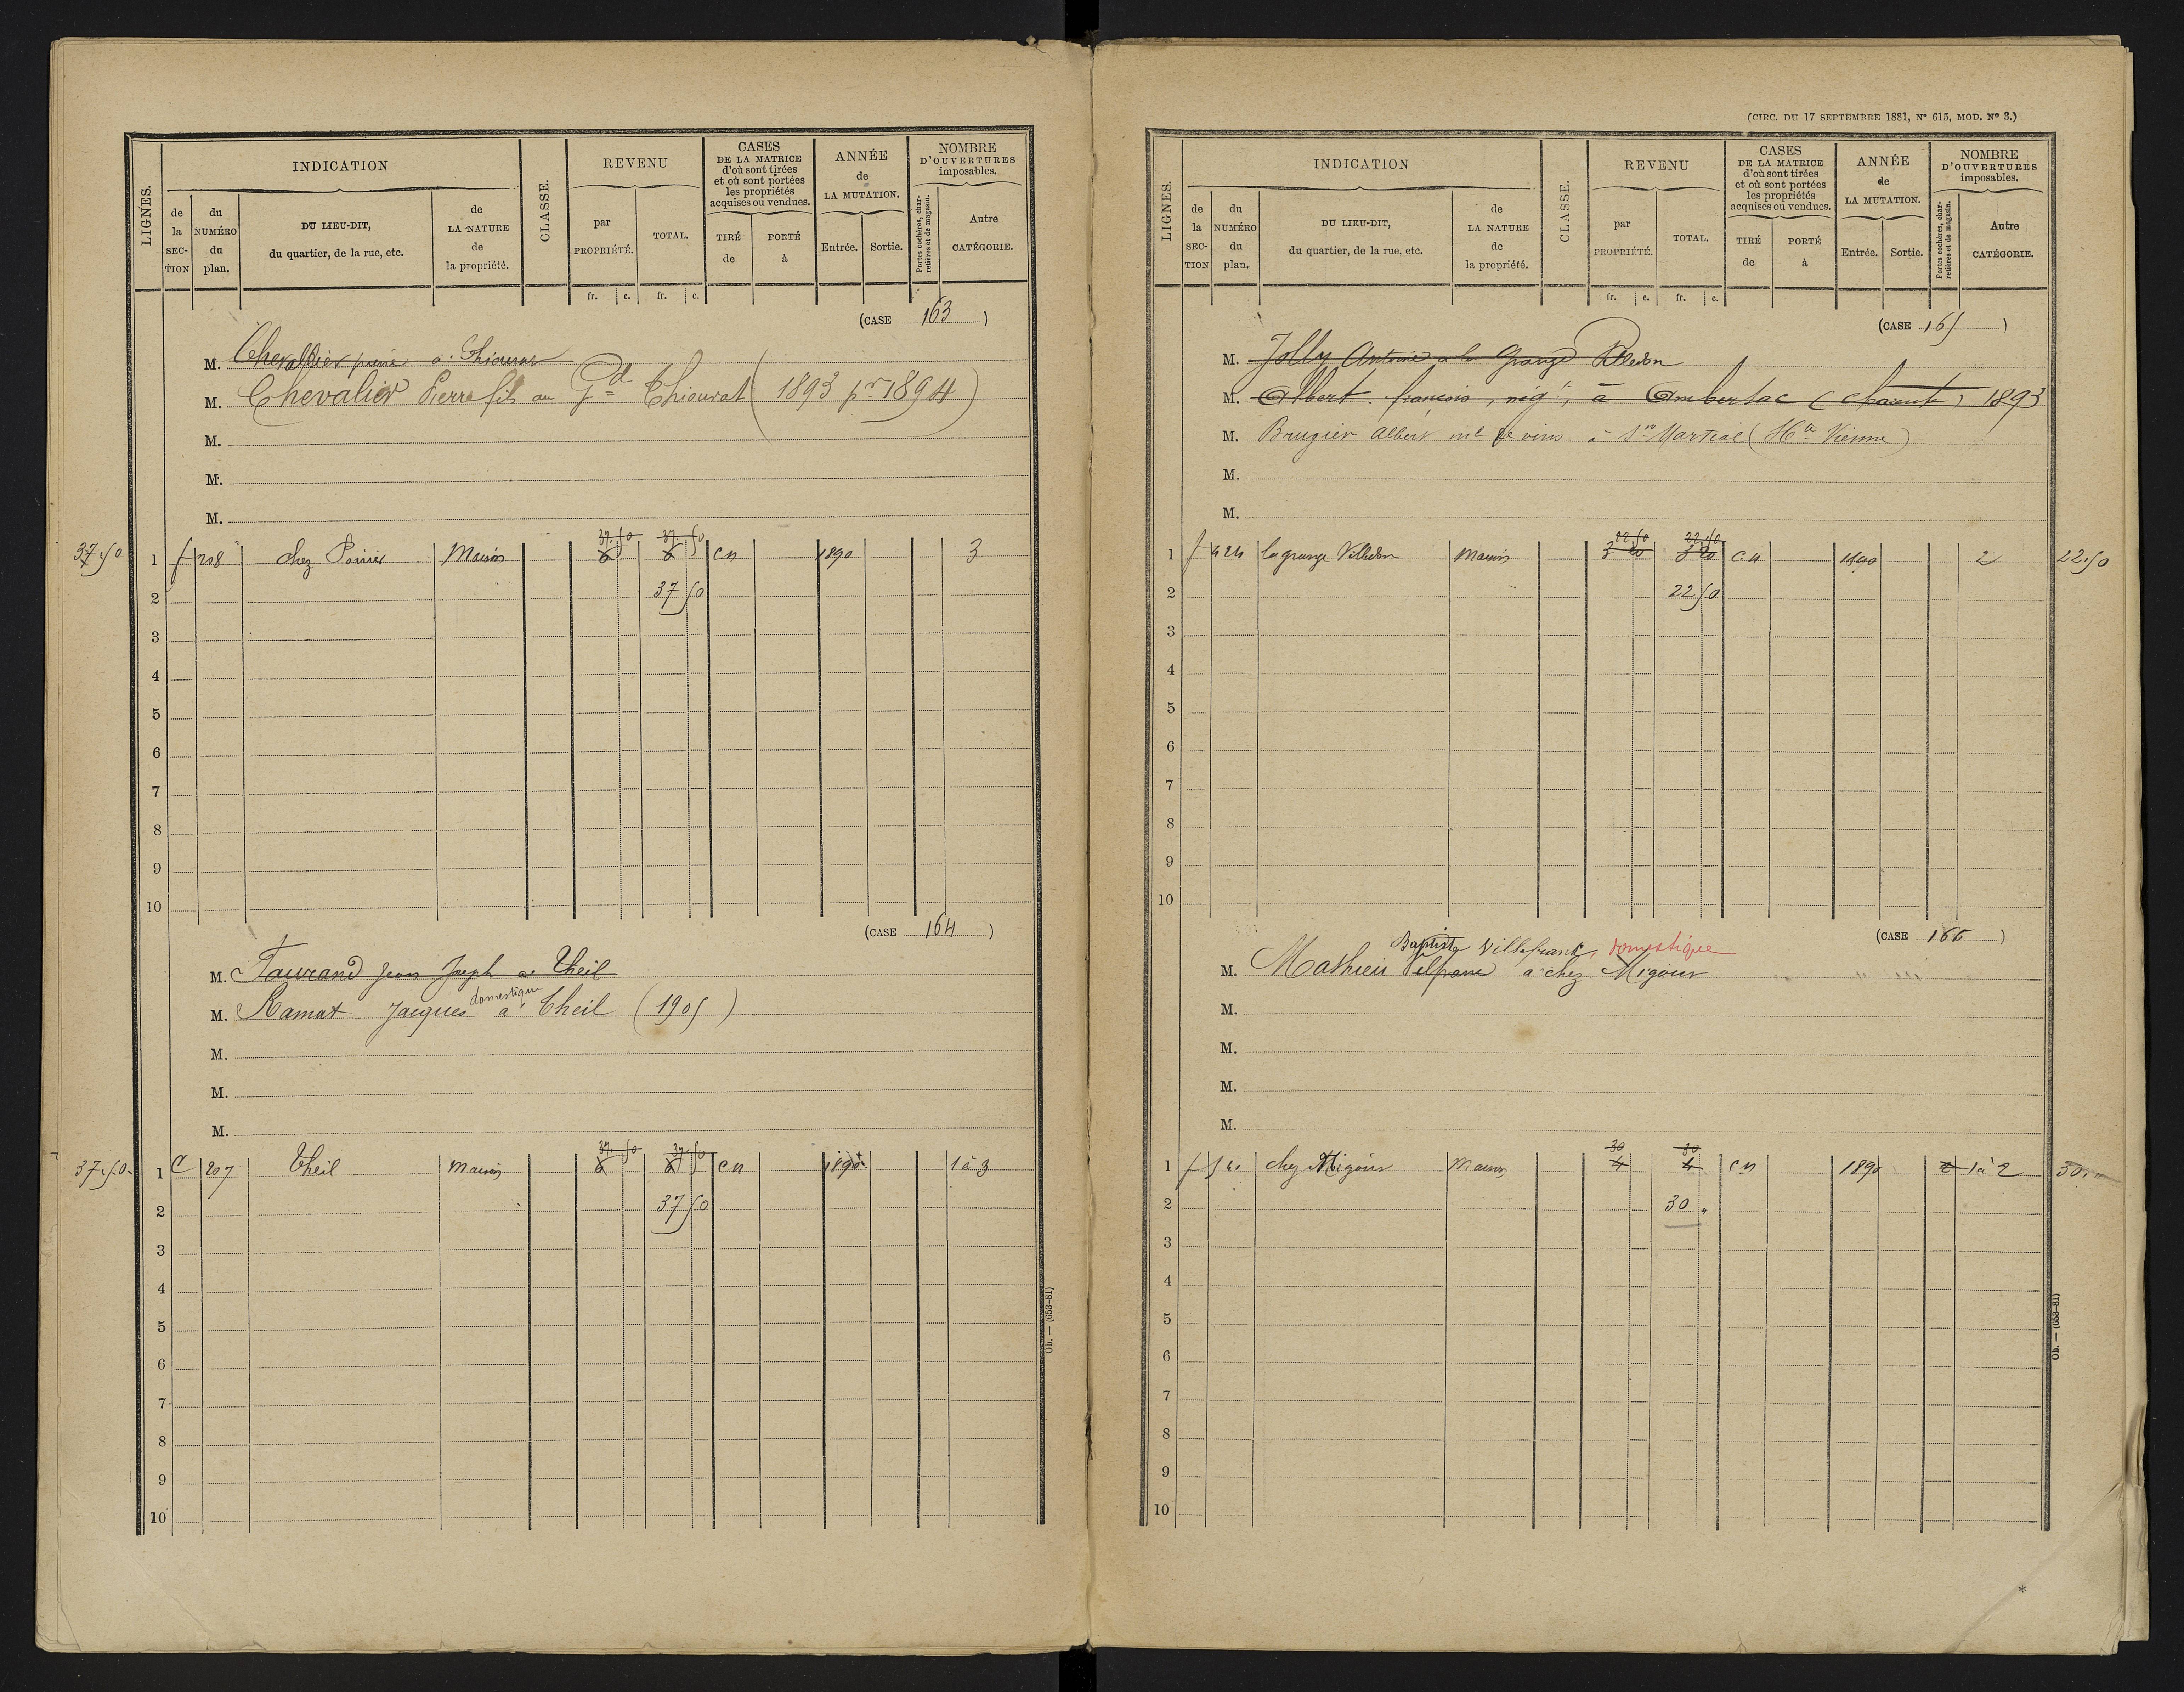 LIGNES.
INDICATION
de la SECTION
du NUMÉRO du plan.
DU LIEU-DIT, du quartier, de la rue, etc.
de LA NATURE de la propriété.
CLASSE.
REVENU
par PROPRIÉTÉ.
TOTAL.
fr. c. fr. c.
CASES DE LA MATRICE d'où sont tirées et où sont portées les propriétés acquises ou vendues.
TIRÉ de
PORTÉ à
ANNÉE de LA MUTATION.
Entrée. Sortie.
NOMBRE D'OUVERTURES imposables.
Portes cochères, charretières et de magasin.
Autre CATÉGORIE.
(CASE 163)
M. Chevallier pierre a
M. Chevalier Pierre fils au Gd Thiourat (1893 pr 1894)
M.
M.
M.
37.50 1 f 208 chez Poirier Maison 37.50 37.50 cn 1890 3
2 37 50
3
4
5
6
7
8
9
10
(CASE 164)
M. Faurand Jean Joseph a Theil
M. Ramat Jacques domestique à Theil (1905)
M.
M.
M.
37.50 1 C 207 Theil maison 37.50 37.50 cn 1890 1 à 3
2 37 50
3
4
5
6
7
8
9
10
Ob. — (653-81)
(CIRC. DU 17 SEPTEMBRE 1881, No 615, MOD. No 3.)
LIGNES.
INDICATION
de la SECTION
du NUMÉRO du plan.
DU LIEU-DIT, du quartier, de la rue, etc.
de LA NATURE de la propriété.
CLASSE.
REVENU
par PROPRIÉTÉ.
TOTAL.
fr. c. fr. c.
CASES DE LA MATRICE d'où sont tirées et où sont portées les propriétés acquises ou vendues.
TIRÉ de
PORTÉ à
ANNÉE de LA MUTATION.
Entrée. Sortie.
NOMBRE D'OUVERTURES imposables.
Portes cochères, charretières et de magasin.
Autre CATÉGORIE.
(CASE 165)
M. Jolly Antoine a la Grange Villedon
M. Albert françois, négt, à Ambertac (charente) 1893
M. Brugier Albert md de vins à St Martial (Hte Vienne)
M.
M.
1 f 424 la grange Villedon maison 22.50 22.50 c.n 1890 2 22.50
2 22 50
3
4
5
6
7
8
9
10
(CASE 166)
Baptiste Villefrank, domestique
M. Mathieu a chez Migour
M.
M.
M.
M.
1 f chez Migour Maison 30 30 cn 1890 1 à 2 30.
2 30 "
3
4
5
6
7
8
9
10
Ob. — (653-81)
*